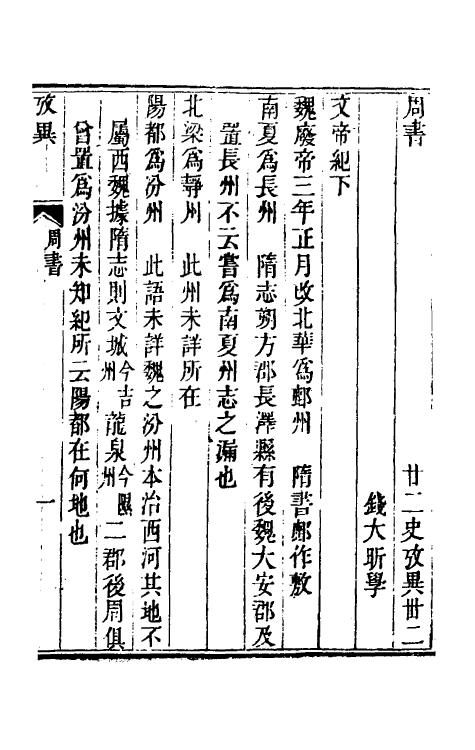 周書　廿二史攷異卅二
錢大昕學
文帝紀下
魏廢帝三年正月改北華爲鄜州　隋書鄜作敷
南夏爲長州　隋志朔方郡長澤縣有後魏大安郡及
置長州不云嘗爲南夏州志之漏也
北梁爲靜州　此州未詳所在
陽都爲汾州　此語未詳魏之汾州本治西河其地不
屬西魏據隋志則文城今吉州龍泉今隰州二郡後周俱
曾置爲汾州未知紀所云陽都在何地也
攷異　周書　一